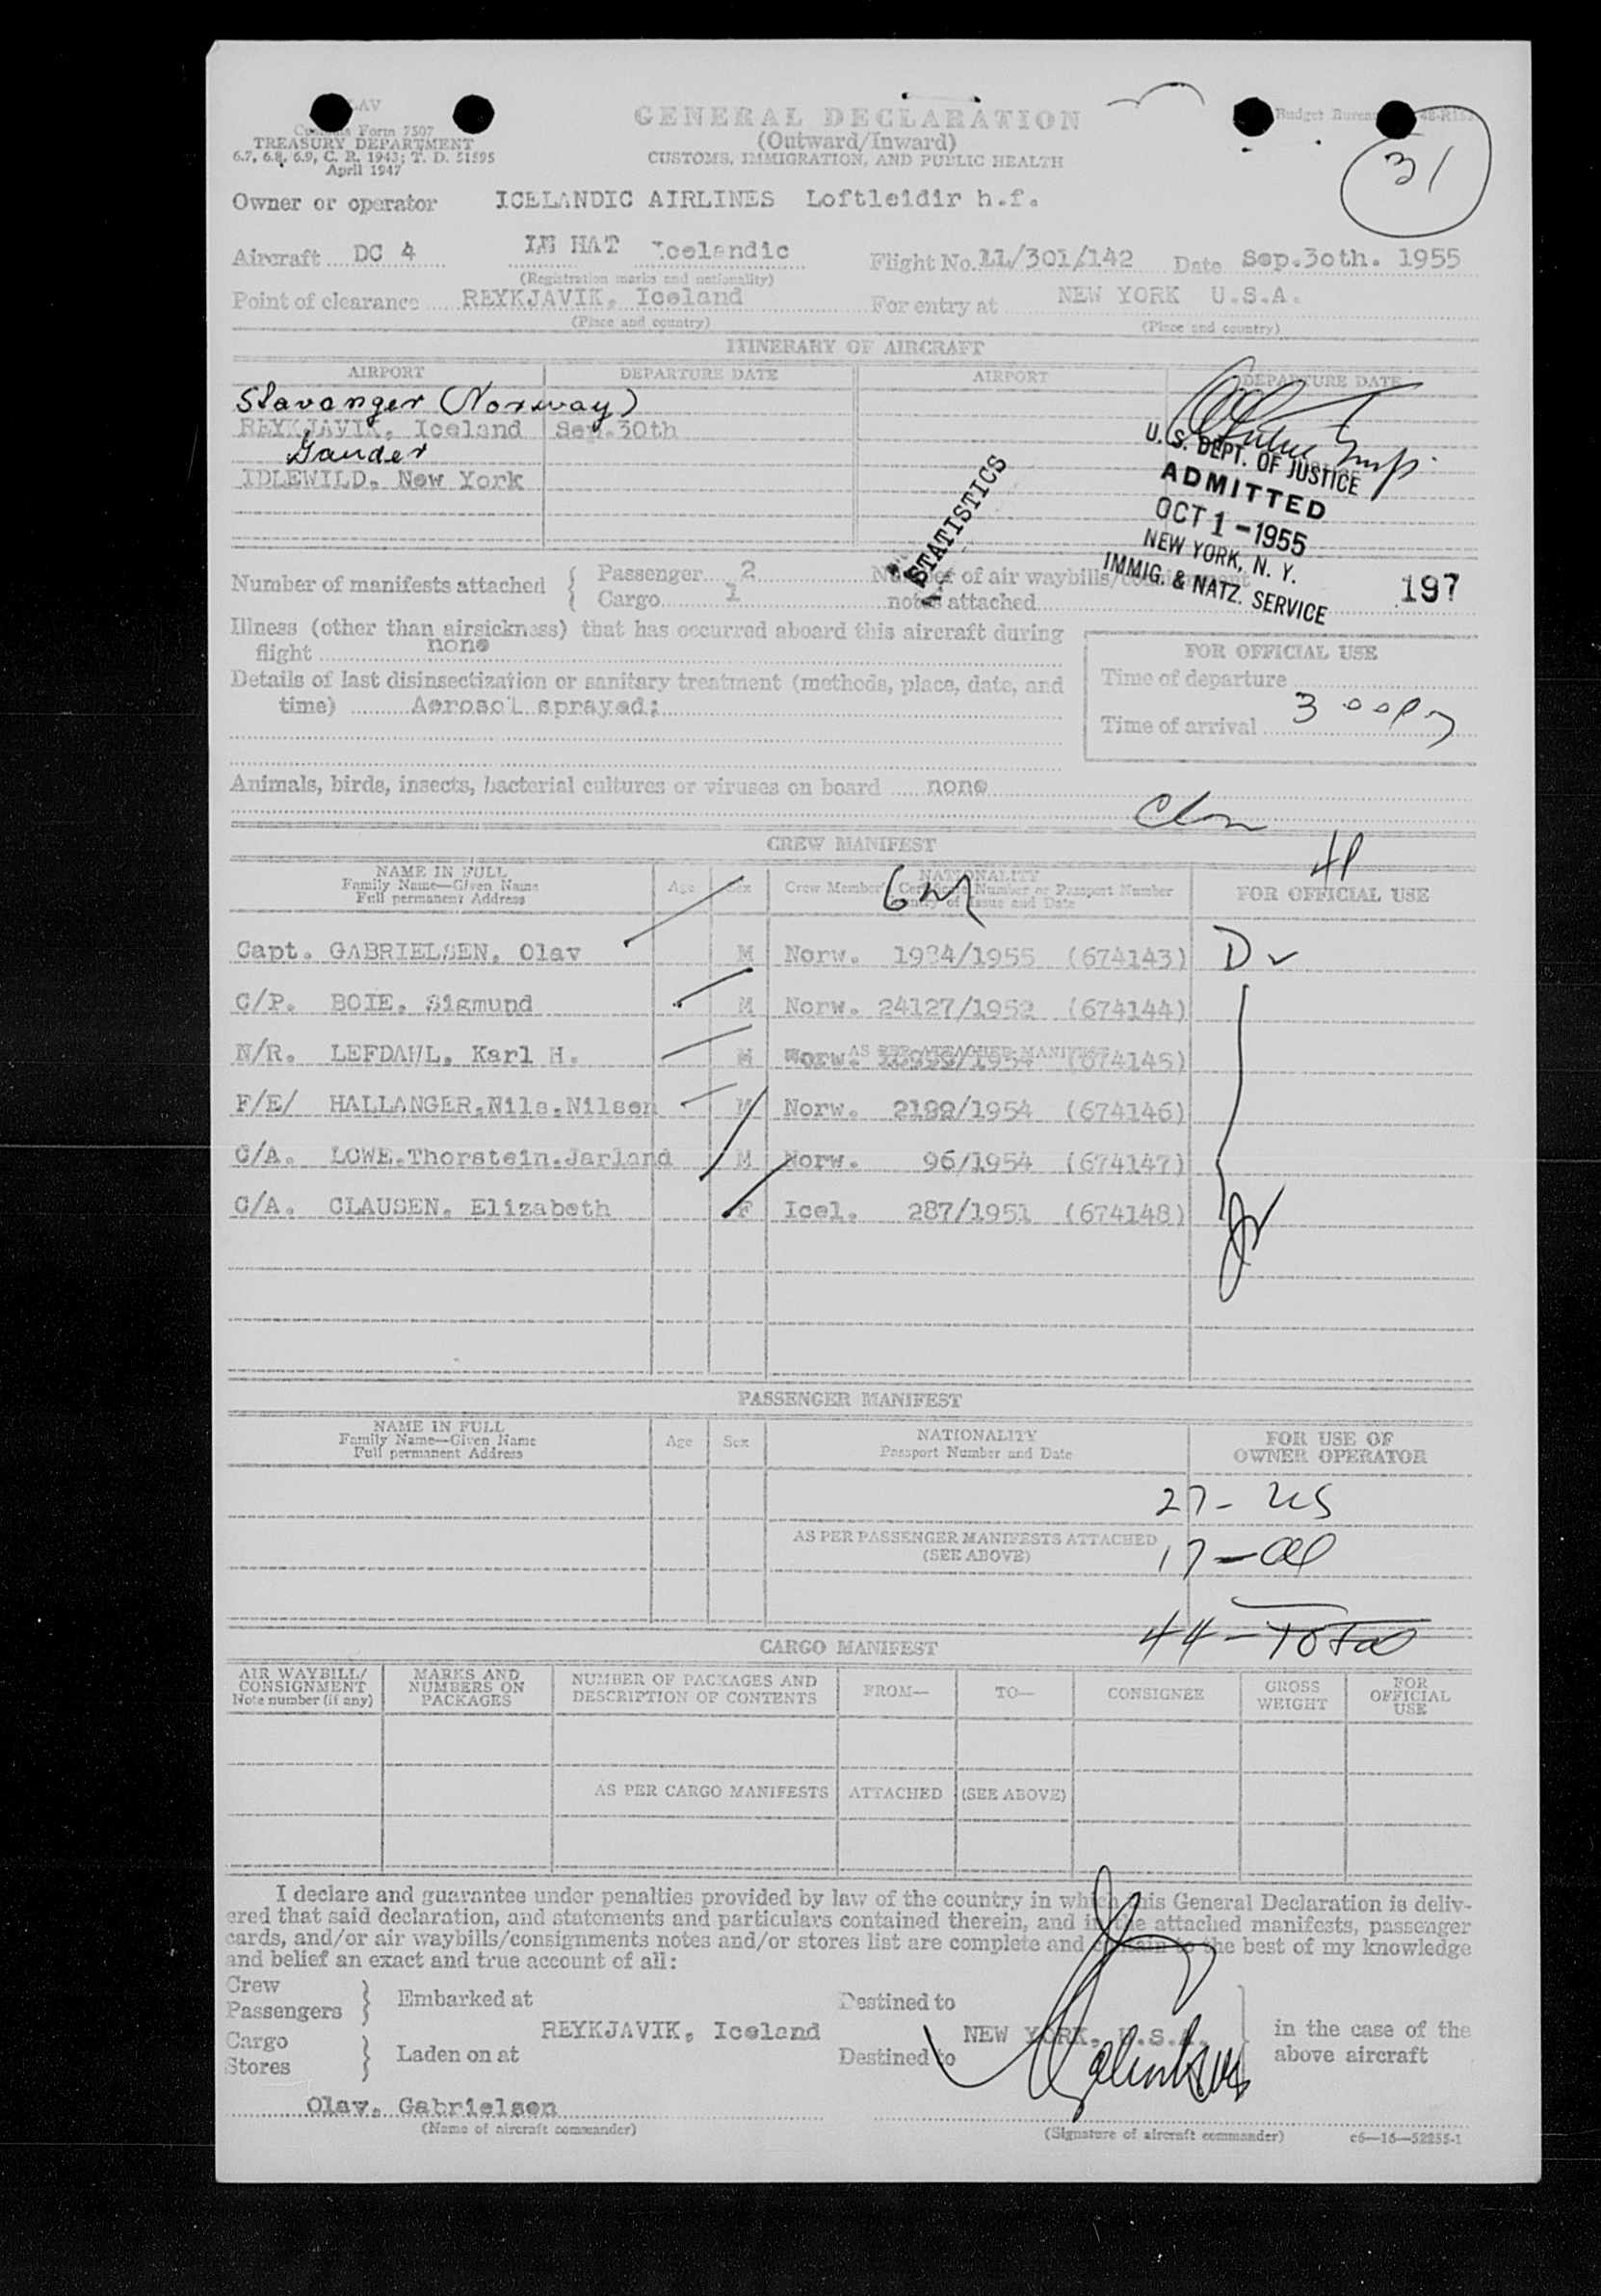 LAV
Customs Form 7507
TREASURY DEPARTMENT
6.7, 6.8, 6.9, C. R. 1943; T. D. 51595
April 1947
GENERAL DECLARATION
(Outward/Inward)
CUSTOMS, IMMIGRATION, AND PUBLIC HEALTH
Budget Bureau
31
Owner or operator ICELANDIC AIRLINES Loftleidir h.f.
Aircraft DC 4 Icelandic Flight No. LL/301/142 Date Sep.3oth. 1955
(Registration marks and nationality)
Point of clearance REYKJAVIK, Iceland For entry at NEW YORK U.S.A.
(Place and country) (Place and country)
ITINERARY OF AIRCRAFT
AIRPORT DEPARTURE DATE AIRPORT DEPARTURE DATE
Stavanger (Norway)
REYKJAVIK, Iceland Sep.30th
Gander
IDLEWILD, New York
STATISTICS
U. S. DEPT. OF JUSTICE
ADMITTED
OCT 1 - 1955
NEW YORK, N. Y.
IMMIG. & NATZ. SERVICE
197
Number of manifests attached { Passenger 2 Number of air waybills/consignment
Cargo 1 notes attached
Illness (other than airsickness) that has occurred aboard this aircraft during
flight none
Details of last disinsectization or sanitary treatment (methods, place, date, and
time) Aerosol sprayed;
FOR OFFICIAL USE
Time of departure
Time of arrival 3 00 pm
Animals, birds, insects, bacterial cultures or viruses on board none
CREW MANIFEST
NAME IN FULL
Family Name—Given Name
Full permanent Address
Age Sex
NATIONALITY
Crew Member's Certificate Number or Passport Number
Country of Issue and Date
FOR OFFICIAL USE
Capt. GABRIELSEN, Olav M Norw. 1934/1955 (674143) D
C/P. BOIE, Sigmund M Norw. 24127/1952 (674144)
N/R. LEFDAHL, Karl H. M Norw. (674145)
AS PER ATTACHED MANIFEST
F/E/ HALLANGER,Nils.Nilsen M Norw. 2192/1954 (674146)
C/A. LOWE.Thorstein.Jarland M Norw. 96/1954 (674147)
C/A. CLAUSEN, Elizabeth F Icel. 287/1951 (674148)
PASSENGER MANIFEST
NAME IN FULL
Family Name—Given Name
Full permanent Address
Age Sex
NATIONALITY
Passport Number and Date
FOR USE OF
OWNER OPERATOR
27 - US
AS PER PASSENGER MANIFESTS ATTACHED
(SEE ABOVE)
17 - al
44 - Total
CARGO MANIFEST
AIR WAYBILL/
CONSIGNMENT
Note number (if any)
MARKS AND
NUMBERS ON
PACKAGES
NUMBER OF PACKAGES AND
DESCRIPTION OF CONTENTS
FROM—
TO—
CONSIGNEE
GROSS
WEIGHT
FOR
OFFICIAL
USE
AS PER CARGO MANIFESTS ATTACHED (SEE ABOVE)
I declare and guarantee under penalties provided by law of the country in which this General Declaration is deliv-
ered that said declaration, and statements and particulars contained therein, and in the attached manifests, passenger
cards, and/or air waybills/consignments notes and/or stores list are complete and contain to the best of my knowledge
and belief an exact and true account of all:
Crew
Passengers } Embarked at Destined to
REYKJAVIK, Iceland NEW YORK, U.S.A. in the case of the
Cargo
Stores } Laden on at Destined to above aircraft
Olav. Gabrielsen
(Name of aircraft commander) (Signature of aircraft commander) c6—16—52255-1